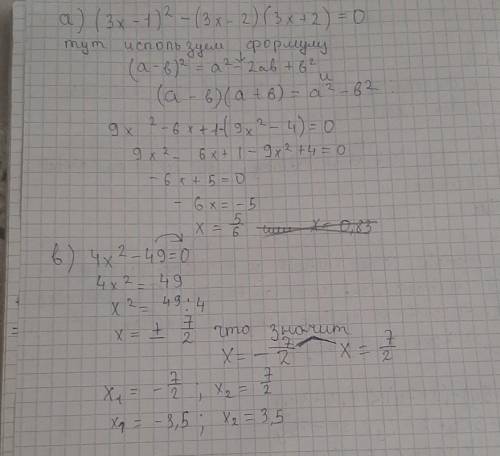 а) (3x-1)² - (3x-2)(3x+2) = 0
тут используем формулу
(а-в)² = а² - 2ав + в²
и
(а-в)(а+в) = а² - в²
9x² - 6x + 1 - (9x² - 4) = 0
9x² - 6x + 1 - 9x² + 4 = 0
-6x + 5 = 0
-6x = -5
x = 5/6
в) 4x² - 49 = 0
4x² = 49
x² = 49 : 4
x = ± 7/2 что значит
x = -7/2 x = 7/2
x₁ = -7/2 ; x₂ = 7/2
x₁ = -3,5 ; x₂ = 3,5